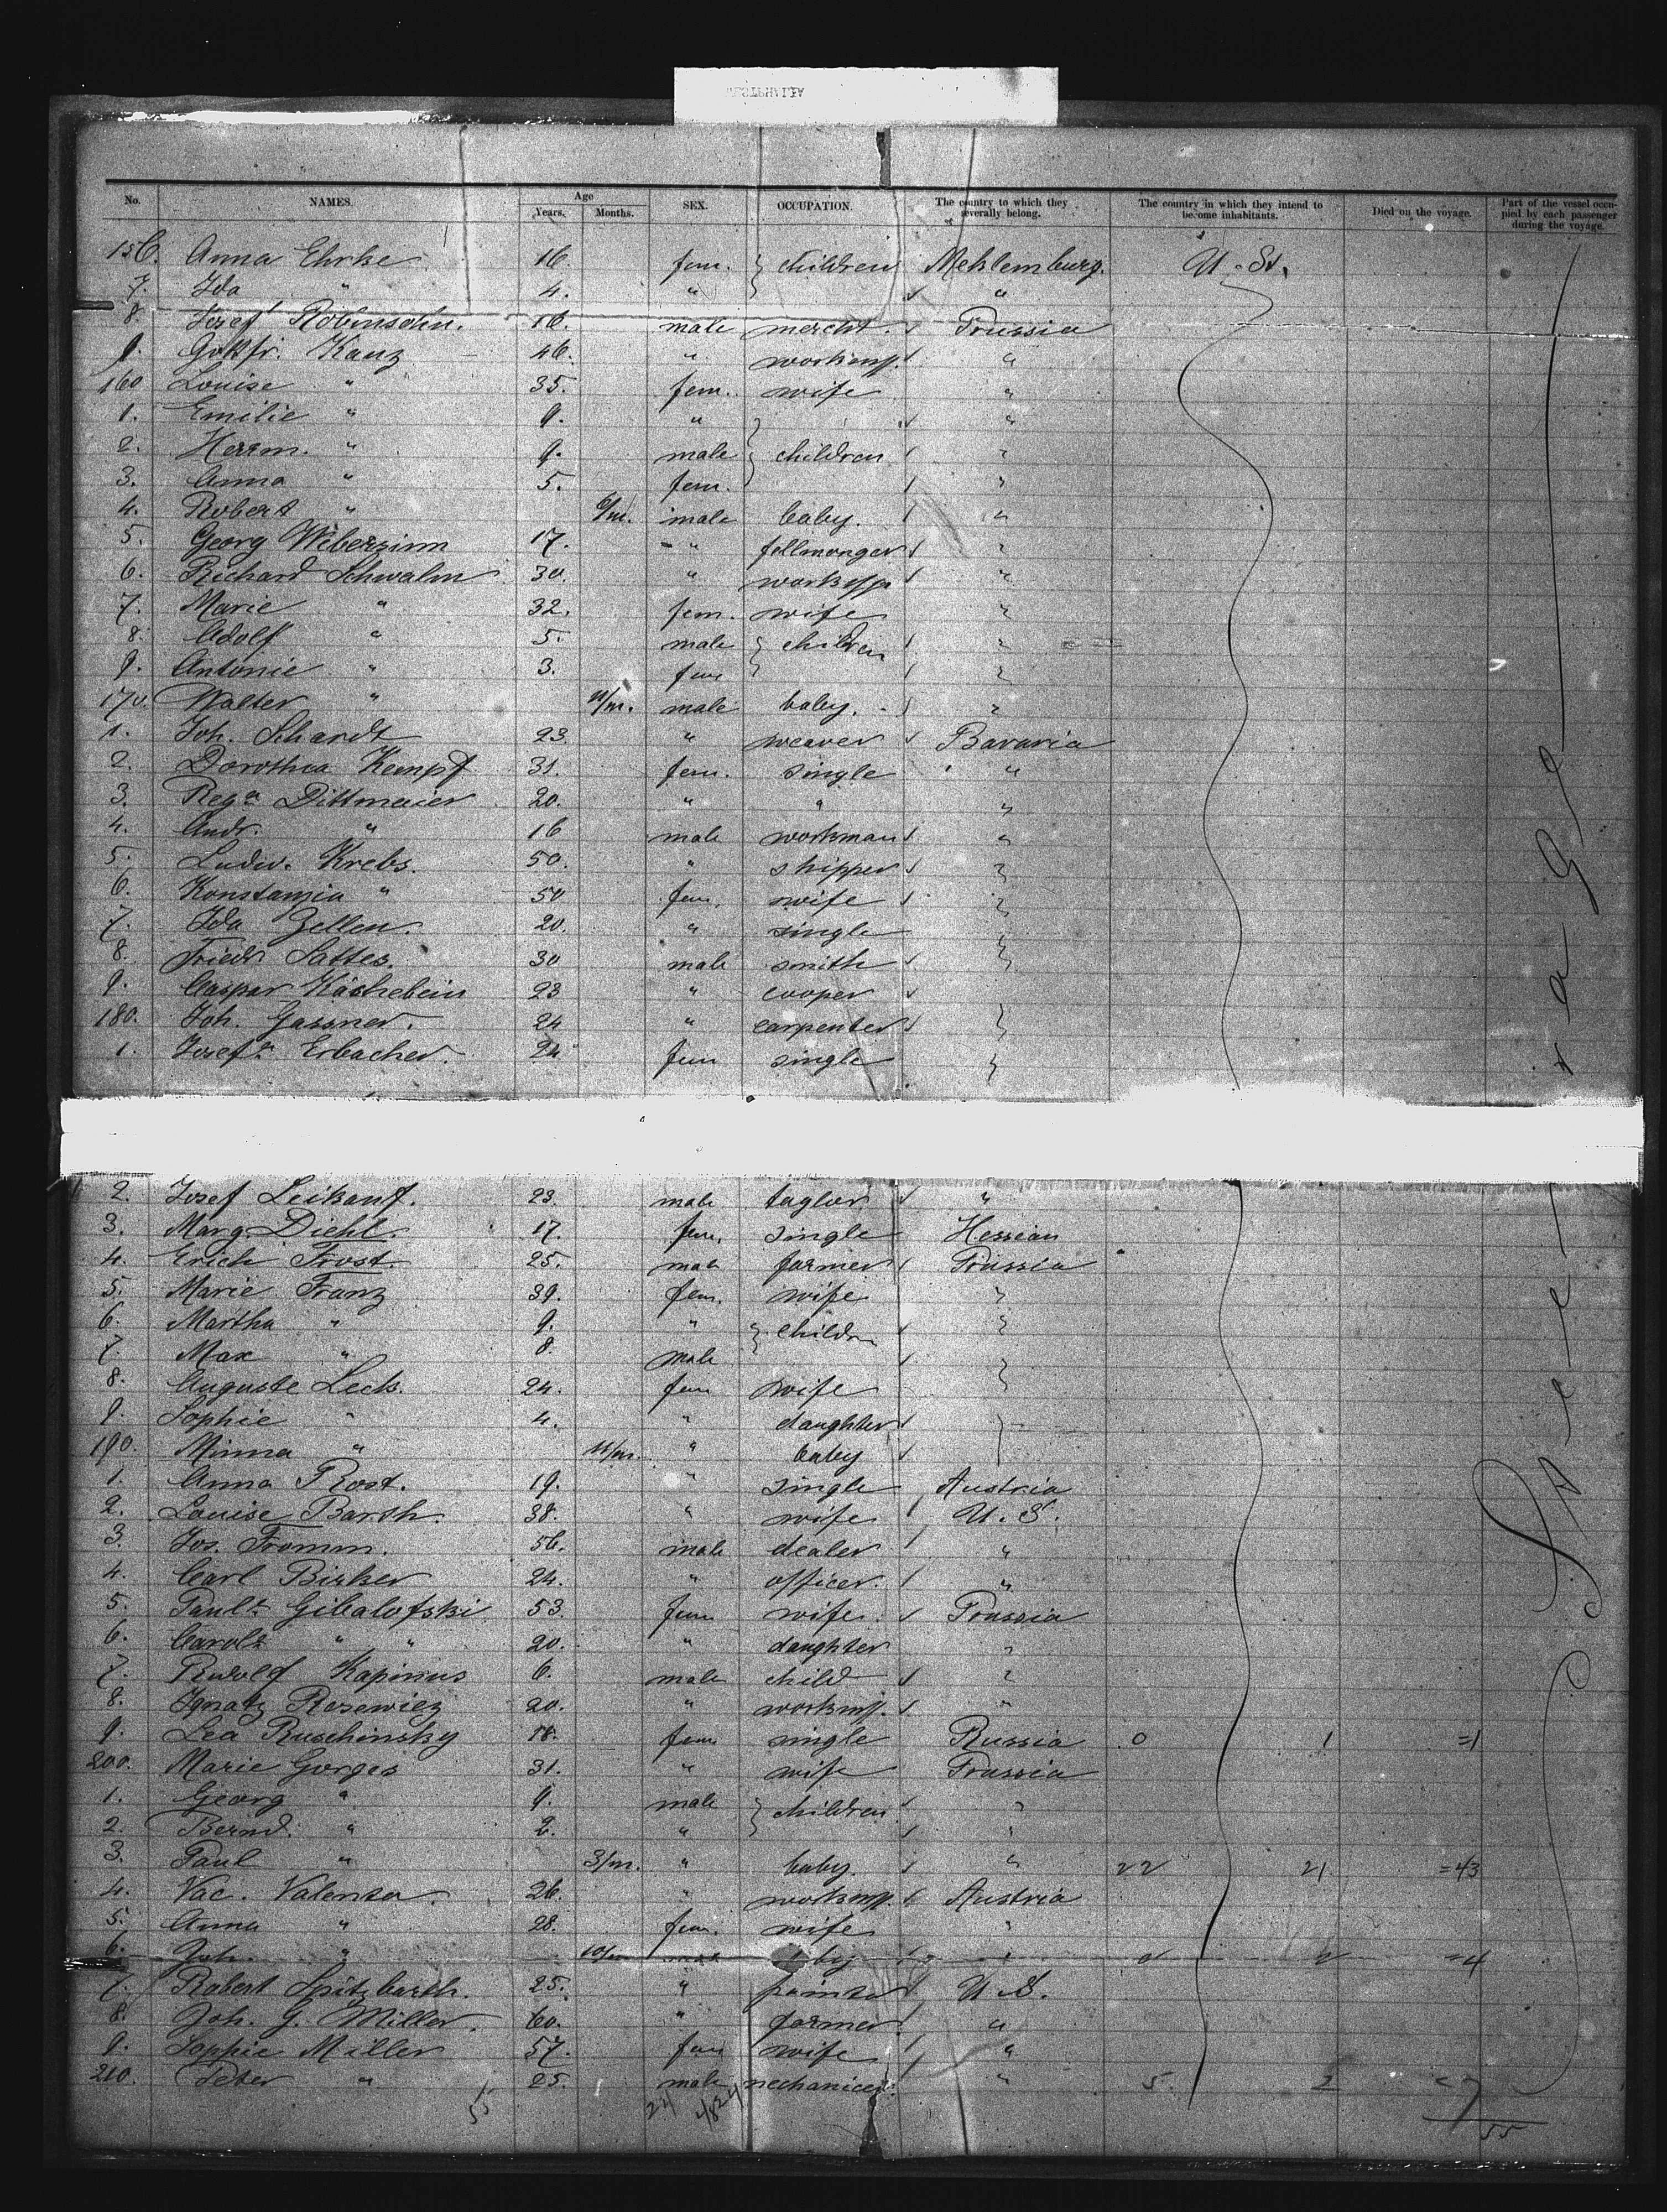 No. NAMES. Age Years. Months. SEX. OCCUPATION. The country to which they severally belong. The country in which they intend to become inhabitants. Died on the voyage. Part of the vessel occupied by each passenger during the voyage.
156. Anna Ehrke 16. fem. } children Meklemburg. U. St.
7. Ida " 4. " } "
8. Josef Robinsohn. 16. male mercht. Prussia
9. Gottfr. Kanz 46. " workmsp. "
160 Louise " 35. fem. wife "
1. Emilie " 9. " } "
2. Herrm. " 9. male } children "
3. Anna " 5. fem. } "
4. Robert " 6/m. male baby. "
5. Georg Weberzinn 17. " fellmonger "
6. Richard Schwalm 30. " "
7. Marie " 32. fem. wife "
8. Adolf " 5. male } children "
9. Antonie " 3. fem } "
170. Walter " 11/m. male baby. "
1. Joh. Schardt 23. " weaver Bavaria
2. Dorothea Kempf 31. fem. single "
3. Rega Dittmaier 20. " " "
4. Andr. " 16 male workman "
5. Ludw. Krebs. 50. " shipper "
6. Konstanzia " 50 fem. wife "
7. Ida Zellen. 20. " single "
8. Friedr. Sattes. 30 male smith "
9. Caspar Käshebein 23 " cooper
180. Joh. Gassner. 24 " carpenter "
1. Josefa Erbacher. 24 fem single "
2. Josef Leikauf. 23. male taylor "
3. Marg. Diehl. 17. fem. single Hessian
4. Erich Frost. 25. male farmer Prussia
5. Marie Franz 39. fem. wife "
6. Martha " 9. " } children "
7. Max " 8. male }
8. Auguste Leck. 24. fem wife "
9. Sophie " 4. " daughter "
190. Minna " 11/m. " baby
1. Anna Rost. 19. " single Austria
2. Louise Barth. 38. " wife U. S.
3. Jos. Fromm. 56. male dealer "
4. Carl Birker 24. " officer. "
5. Paula Gibalofski 53. fem wife. Prussia
6. Carola " " 20. " daughter "
7. Rudolf Kapinus 6. male child "
8. Ignatz Rosewicz 20. " workmsp. "
9. Lea Ruschinsky 18. fem single Russia 0 1 =1
200. Marie Gorges 31. " wife Prussia
1. Georg " 9. male } children "
2. Bernd. " 2. " } "
3. Paul " 3/m. " baby. " 22 21 =43
4. Vac. Valenta 26. " workmsp. Austria
5. Anna " 28. fem. wife "
6. Joh. " 10/m baby " 2 2 =4
7. Robert Spitzbarth. 25. " painter U. S.
8. Joh. G. Miller. 60. " farmer "
9. Sophie Miller 57. fem wife "
210. Peter " 25. male mechanicer. " 5. 2 =7
55 24 55
Steerage